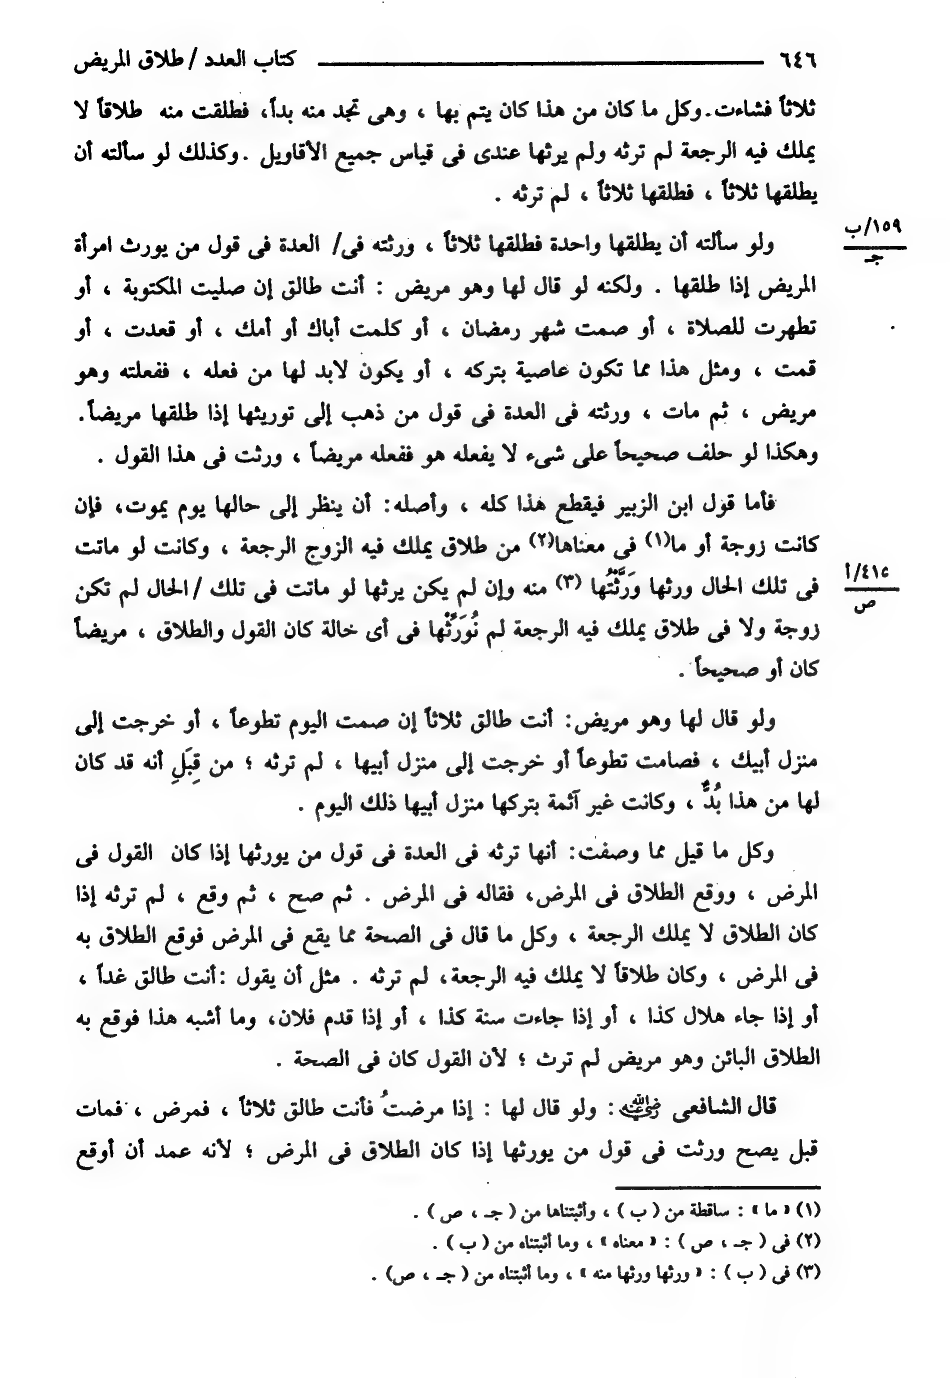 ٦٤٦ كتاب العدد / طلاق المريض
ثلاثاً فشاءت.وكل ما كان من هذا كان يتم بها ، وهى تجد منه بداً، فطلقت منه طلاقاً لا
يملك فيه الرجعة لم ترثه ولم يرثها عندى فى قياس جميع الأقاويل .وكذلك لو سألته أن
يطلقها ثلاثاً ، فطلقها ثلاثاً ، لم ترثه .
١٥٩/ب
جـ
ولو سألته أن يطلقها واحدة فطلقها ثلاثاً ، ورثته فى/ العدة فى قول من يورث امرأة
المريض إذا طلقها . ولكنه لو قال لها وهو مريض : أنت طالق إن صليت المكتوبة ، أو
تطهرت للصلاة ، أو صمت شهر رمضان ، أو كلمت أباك أو أمك ، أو قعدت ، أو
قمت ، ومثل هذا مما تكون عاصية بتركه ، أو يكون لابد لها من فعله ، ففعلته وهو
مريض ، ثم مات ، ورثته فى العدة فى قول من ذهب إلى توريثها إذا طلقها مريضاً.
وهكذا لو حلف صحيحاً على شىء لا يفعله هو ففعله مريضاً ، ورثت فى هذا القول .
فأما قول ابن الزبير فيقطع هذا كله ، وأصله: أن ينظر إلى حالها يوم يموت، فإن
كانت زوجة أو ما(١) فى معناها(٢) من طلاق يملك فيه الزوج الرجعة ، وكانت لو ماتت
٤١٤/أ
ص
فى تلك الحال ورثها وَرَّثْتُها (٣) منه وإن لم يكن يرثها لو ماتت فى تلك /الحال لم تكن
زوجة ولا فى طلاق يملك فيه الرجعة لم نُوَرِّثْها فى أى خالة كان القول والطلاق ، مريضاً
كان أو صحيحاً .
ولو قال لها وهو مريض: أنت طالق ثلاثاً إن صمت اليوم تطوعاً ، أو خرجت إلى
منزل أبيك ، فصامت تطوعاً أو خرجت إلى منزل أبيها ، لم ترثه ؛ من قِبَلِ أنه قد كان
لها من هذا بُدٌّ ، وكانت غير آثمة بتركها منزل أبيها ذلك اليوم .
وكل ما قيل مما وصفت: أنها ترثه فى العدة فى قول من يورثها إذا كان القول فى
المرض ، ووقع الطلاق فى المرض، فقاله فى المرض . ثم صح ، ثم وقع ، لم ترثه إذا
كان الطلاق لا يملك الرجعة ، وكل ما قال فى الصحة مما يقع فى المرض فوقع الطلاق به
فى المرض ، وكان طلاقاً لا يملك فيه الرجعة، لم ترثه . مثل أن يقول :أنت طالق غداً ،
أو إذا جاء هلال كذا ، أو إذا جاءت سنة كذا ، أو إذا قدم فلان، وما أشبه هذا فوقع به
الطلاق البائن وهو مريض لم ترث ؛ لأن القول كان فى الصحة .
قال الشافعى رضي الله عنه : ولو قال لها : إذا مرضتُ فأنت طالق ثلاثاً ، فمرض ، فمات
قبل يصح ورثت فى قول من يورثها إذا كان الطلاق فى المرض ؛ لأنه عمد أن أوقع
(١) « ما » : ساقطة من ( ب ) ، وأثبتناها من ( جـ ، ص ) .
(٢) فى ( جـ ، ص ) : « معناه » ، وما أثبتناه من ( ب ) .
(٣) فى ( ب ) : « ورثها ورثها منه » ، وما أثبتناه من ( جـ ، ص) .